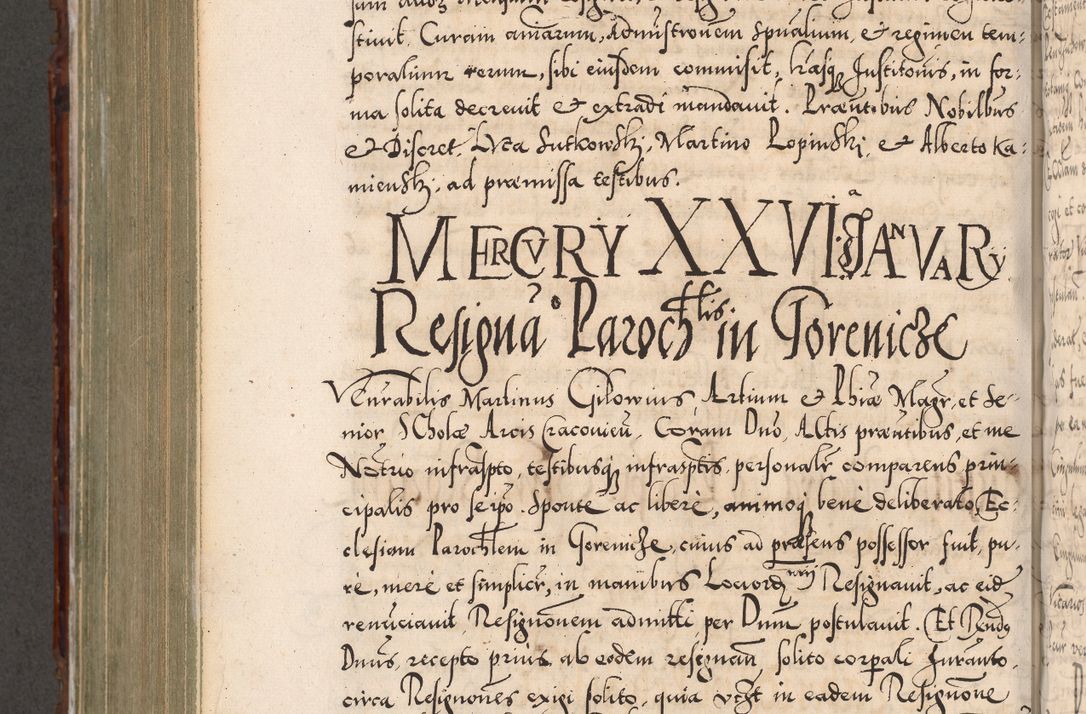 stivit, Curam aniārum, Admīstroēm Spūalium, et regimen tem-
poralium rerum, sibi eiusdem commisit, lrāsq Institoīis, in for-
ma solita decrevit et extradi mandavit. Præūtibus Nobilbus
et Discret. Lvca Sutkowskj, Martino Lopinskj, et Alberto Ka-
mienskj, ad præmissa testibus.
MERCVRY XXVI.a IANVARY.
Resignāo Parochtlis in Gorenicze
Venrabilis Martinus Gilowius, Artium et Phiæ Magr, et Se-
nior Scholæ Arcis Cracovień, Coram Dno, Actis præūtibus, et me
Notrio infrasp̄to, testibusq infrasp̄tis, personalr comparens prin-
cipalis pro seip̄o. Sponte ac liberè, animoq benè deliberato, Ec-
clesiam Parochtlem in Gorenicze, cuius ad præsens possessor fuit, pu-
rè, merè et simplicr, in manibus Locivordj nrij Resignavit, ac eid
renūciavit, Resignoēm admitti per Dnm postulavit. Et Rendq
Dnus, recepto prius ab eodem resignań, solito corpali Iuranto,
circa Resignoēs exigi solito, quia vczt in eadem Resignōne